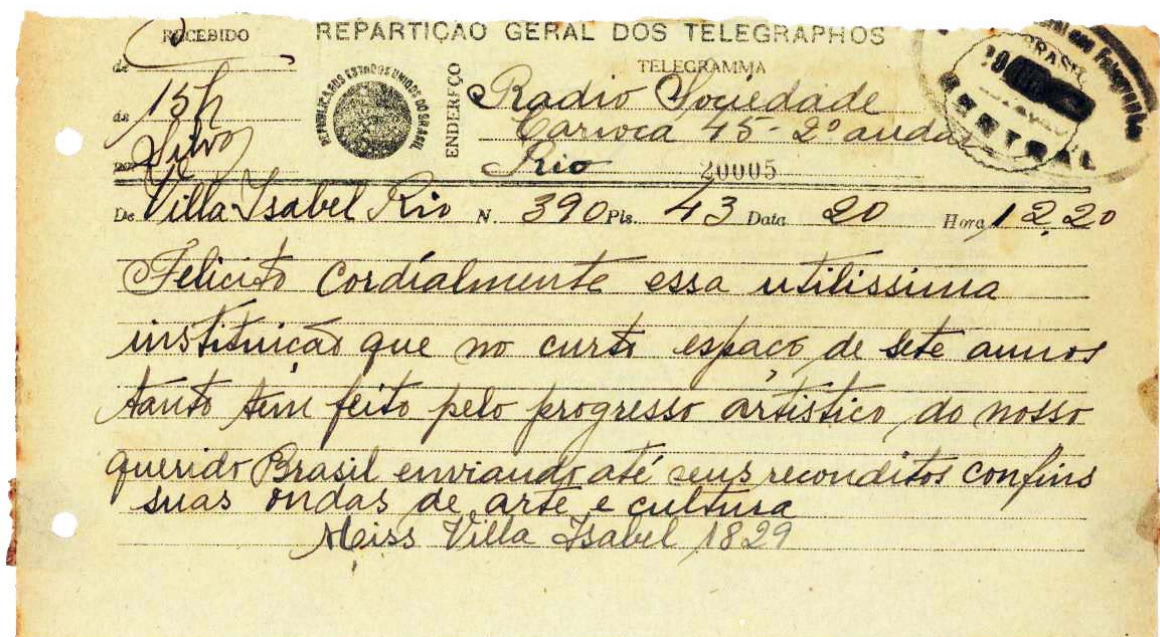 RECEBIDO
REPARTIÇÃO GERAL DOS TELEGRAPHOS
TELEGRAMMA
de
às 15h
por Silva
REPUBLICA DOS ESTADOS UNIDOS DO BRASIL
ENDEREÇO
Radio Sociedade
Carioca 45 - 2º andar
Rio 20005
BRASIL
CENTRAL
De Villa Isabel Rio N. 390 Pls. 43 Data 20 Hora 12,20
Felicito Cordialmente essa utilissima
instituição que no curto espaço de sete annos
tanto tem feito pelo progresso artistico do nosso
querido Brasil enviando até seus reconditos confins
suas ondas de arte e cultura
Miss Villa Isabel 1829